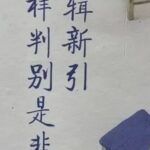 辑新引
样判别是非